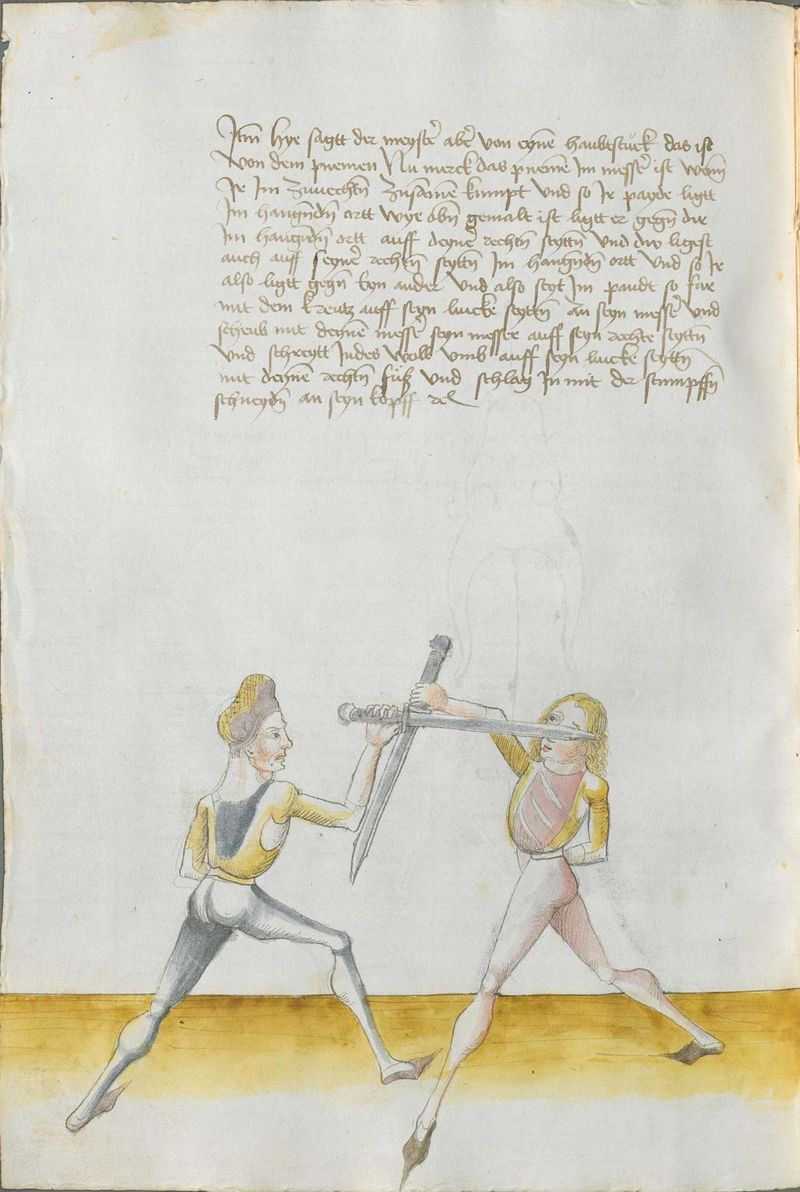 Itm̄ hye sagtt der meystẽ abẽ von eynē haubtstück das ist
von dem pnemen Nu merck das pnemē Im messẽ ist wenn
Ir Im zuuechtn̄ zusāmē kumpt vnd so Ir payde ligtt
Im hangn̄dn̄ ortt wye obn̄ gemalt ist ligtt er gegn̄ dir
Im hangn̄dn̄ ortt auff deynẽ rechtn̄ seyttn̄ vnd dw ligest
auch auff seynẽ rechtn̄ seyttn̄ Im hangn̄dn̄ ortt vnd so Ir
also ligtt gegn̄ eyn ander vnd also seyt Im pandt so far
mit dem kreutz auff seyn lincke seyttn̄ an seyn messẽ vnd
scheub mit deynē messẽ seyn messer auff seyn rechte seyttn̄
vnd schreytt Indes woll vmb auff seyn lincke seyttn̄
mit deynē rechtn̄ fuß vnd schlag In mit der stumpffn̄
schneydn̄ an seyn kopff